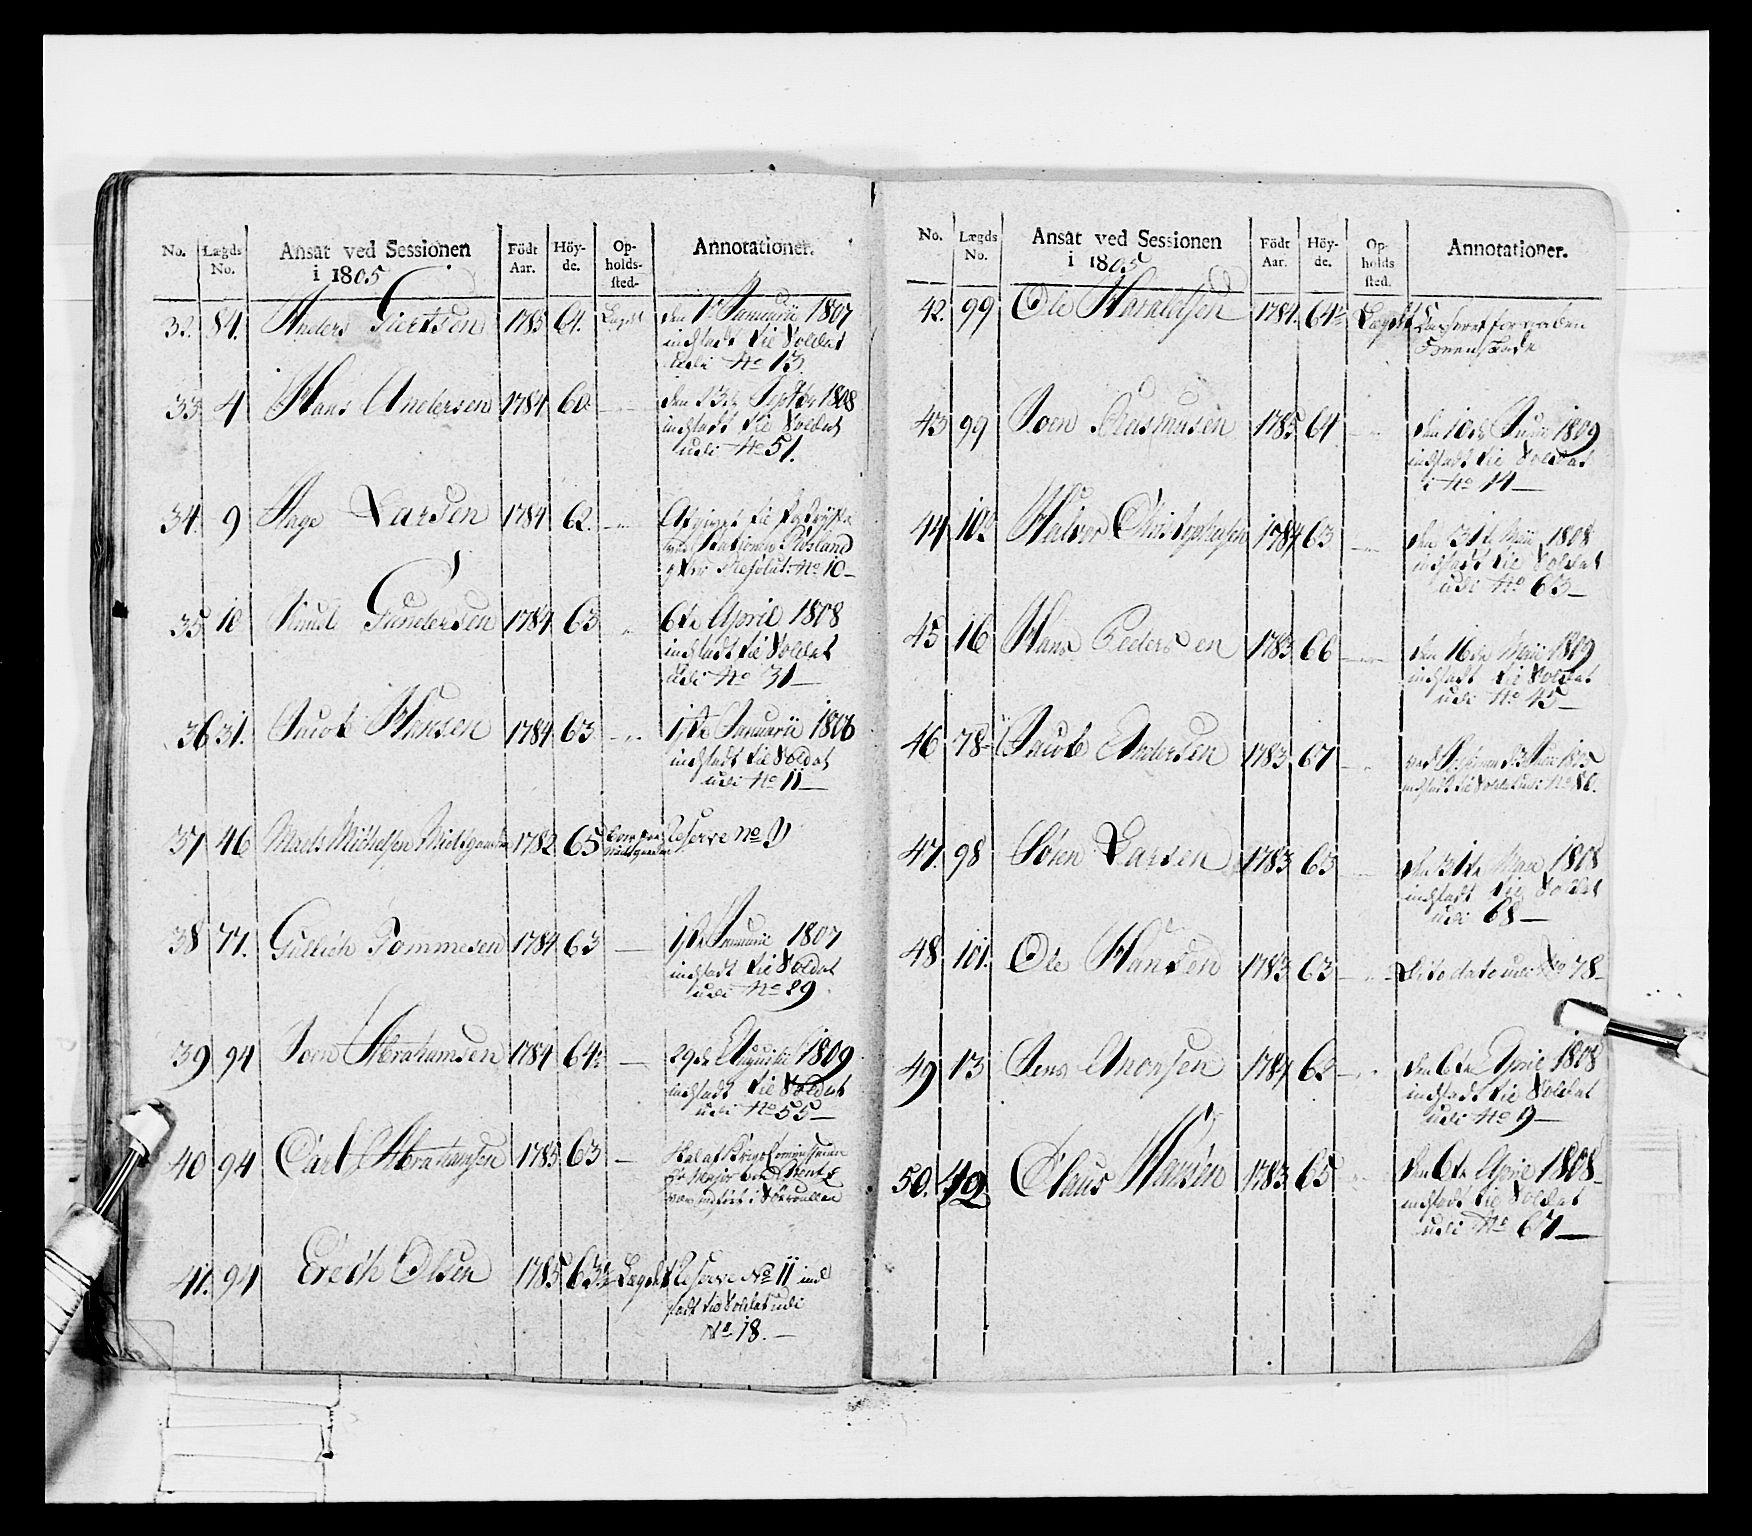 No. Lægds No. Ansat ved Sessionen i 1805 Födt Aar. Höy-de. Op-holds-sted. Annotationer.
32. 84. Anders Giertsen 1785 61. Lægdet den 1te Januarii 1807
indsadt til Soldat
udi No 13.
33 4 Hans Andersen 1784 60 den 23de Septbr 1808
indsadt til Soldat
udi No 51.
34. 9 Aage Larsen 1784 62.
Resolut: No 10
35 10 Knud Gundersen 1784 63 6te April 1808
indsadt til Soldat
udi No 31
36 31. Jacob Hansen 1784 63 1te Januarii 1806
indsadt til Soldat
udi No 11
37 46 Mads Michelsen 1782 65 Reserve No 9
38 77. Gullich Tommesen 1784 63 1te Januarii 1807
indsadt til Soldat
udi No 29
39 94 Joen Abrahamsen 1784 64½ 29de Augusti 1809
indsadt til Soldat
udi No 55
40 94 Carl Abrahamsen 1785 63
41. 94 Erich Olsen 1785 63½ Lægdet Reserve No 11 ind
sadt til Soldat udi
No 18.
No. Lægds No. Ansat ved Sessionen i 1805 Födt Aar. Höy-de. Op-holds sted. Annotationer.
42. 99 Ole Haraldsen 1784. 64½ Lægdet
43 99 Joen Rasmusen 1785 64 den 10de Junii 1809
indsadt til Soldat
i No 14
44 102 Halvor Christophersen 1784 63 den 31te Maii 1808
indsadt til Soldat
udi No 63
45 16 Hans Pedersen 1783 66 den 16de Maii 1809
indsadt til Soldat
udi No 45
46 78 Jacob Andersen 1783 67
indsadt til Soldat udi No 86.
47. 98 Sören Larsen 1783 63 den 31te Maii 1808
indsadt til Soldat
udi 68
48 101. Ole Hansen 1783 63 Dito dato udi No 78
49 13 Jens Anonsen 1784 62 den 6te April 1808
indsadt til Soldat
udi No 9
50. 42 Claus Hansen 1783 65 den 6te April 1808
indsadt til Soldat
udi No 67